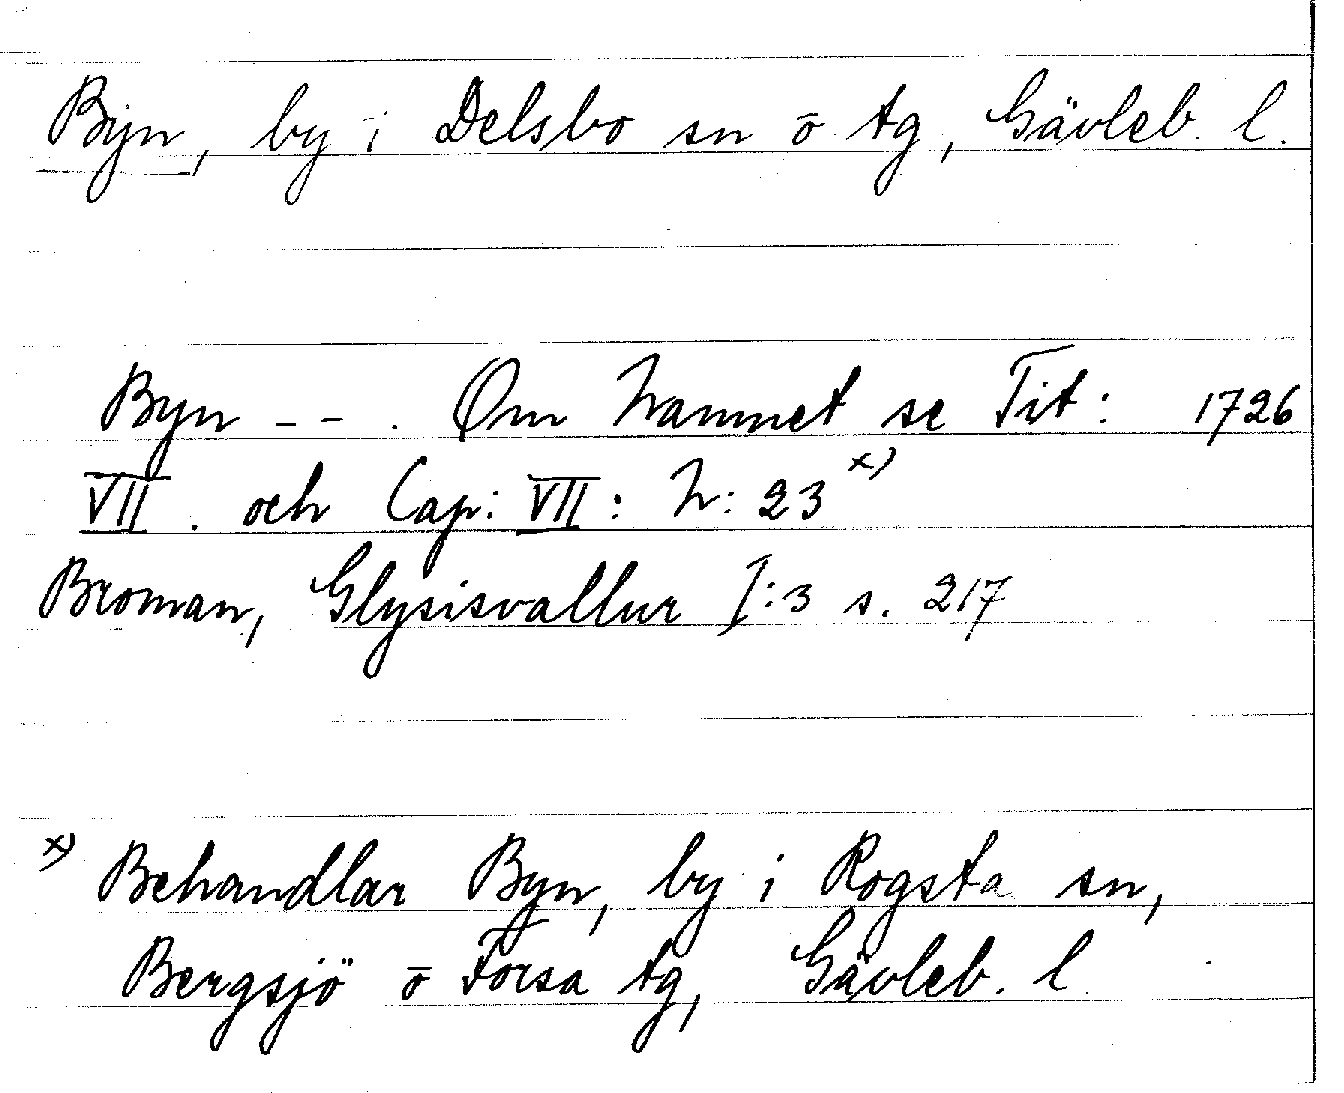 Byn, by i Delsbo sn o tg, Gävleb. l.
Byn - - . Om Namnet se Tit: 1726
VII . och Cap: VII : N: 23 x)
Broman, Glysisvallur I:3 s. 217
x) Behandlar Byn, by i Rogsta sn,
Bergsjö o Forsa tg, Gävleb. l.